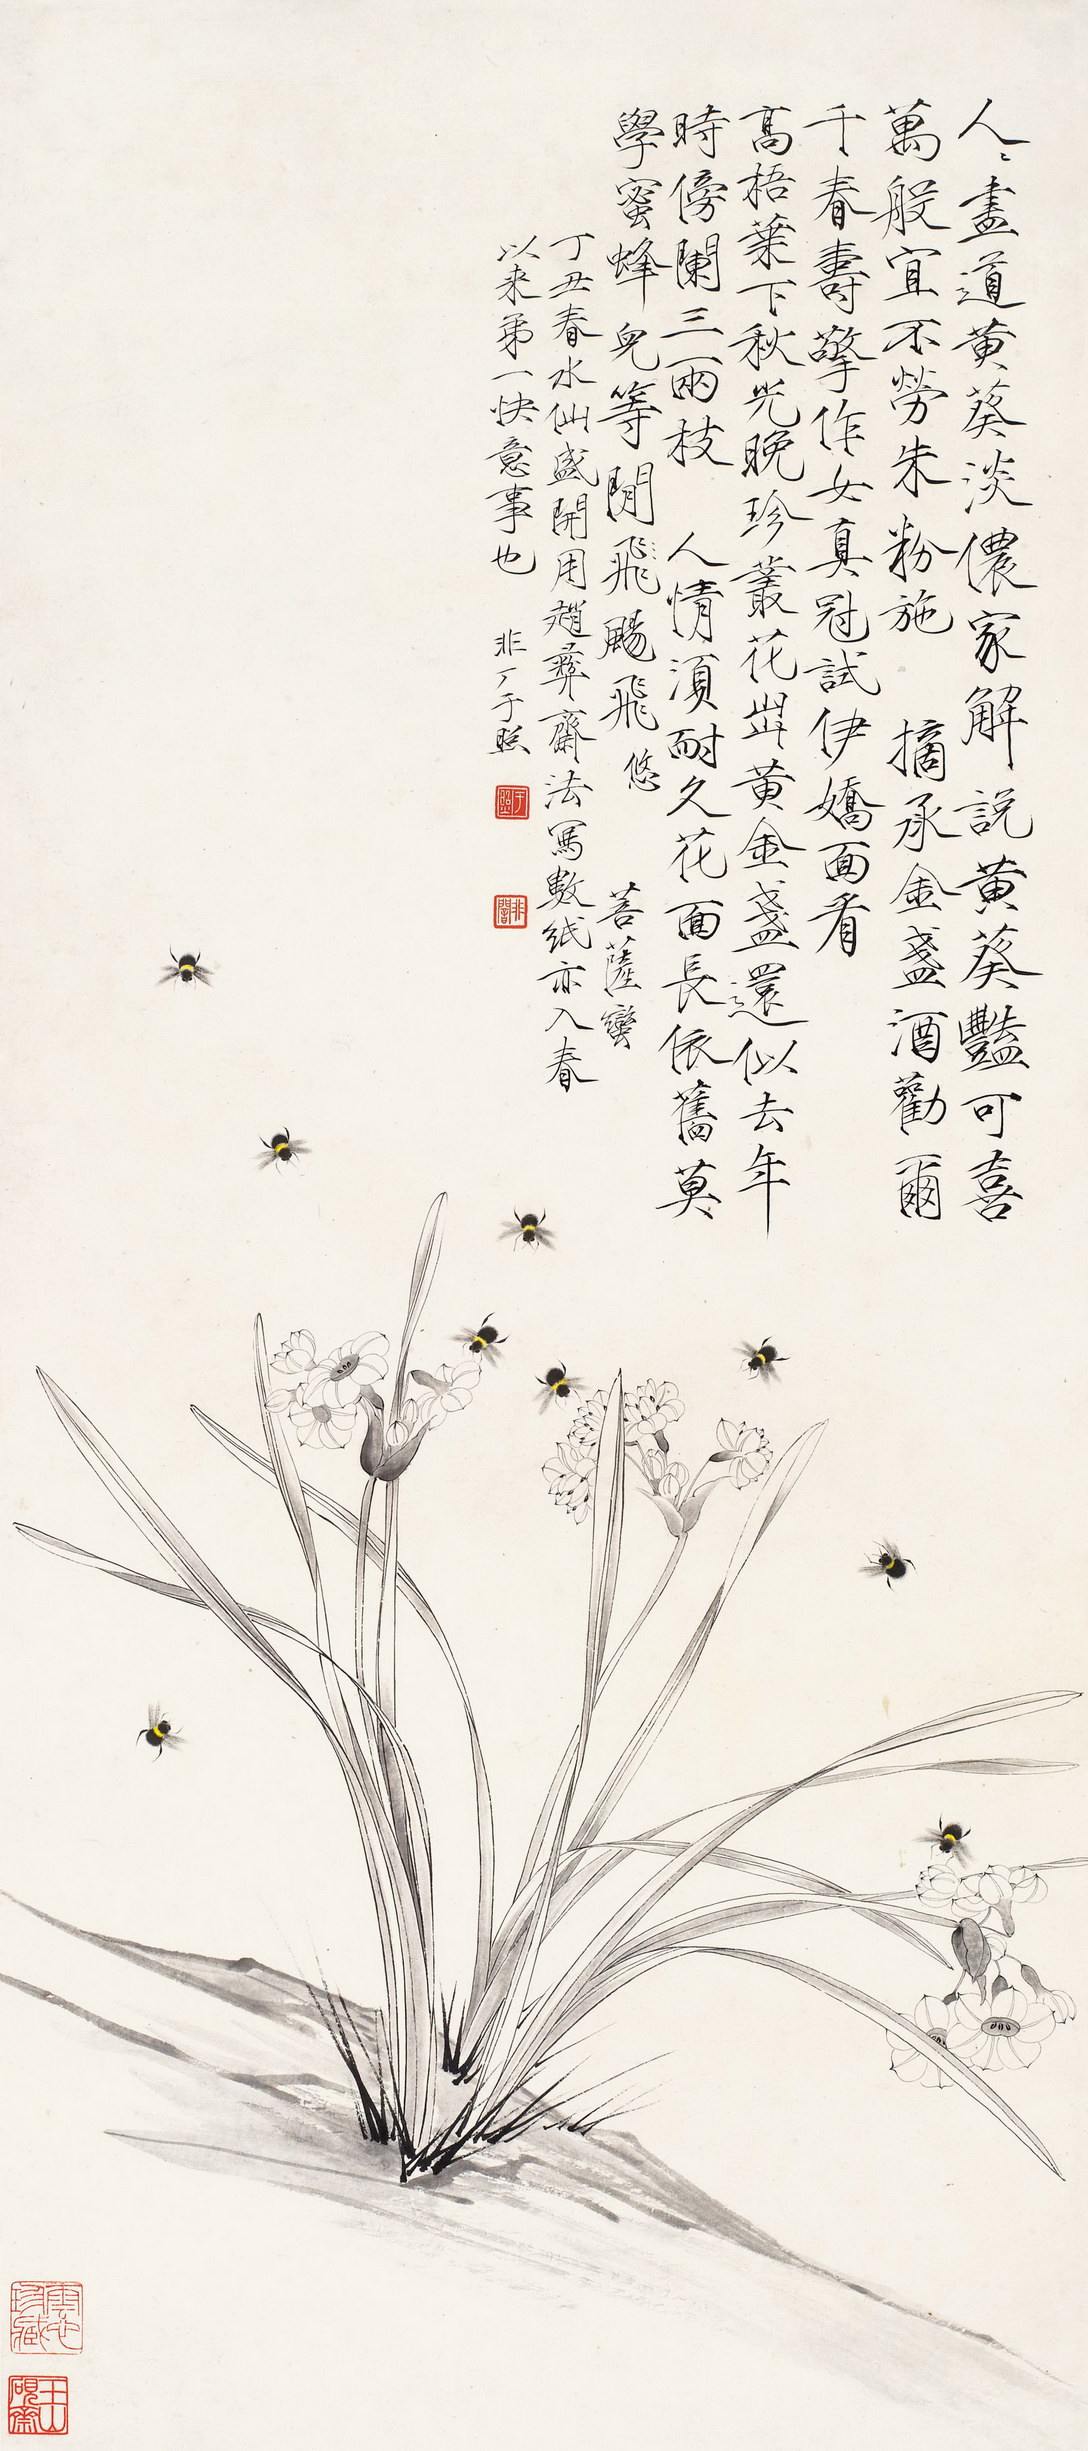 人〻盡道黃葵淡儂家解說黃葵豔可喜
萬般宜不勞朱粉施 摘承金盞酒勸爾
千春壽擎作女真冠試伊嬌面看
高梧葉下秋光晚珍叢花出黃金盞還似去年
時傍闌三兩枝 人情須耐久花面長依舊莫
學蜜蜂兒等閒飛颺飛 悠 菩薩蠻
丁丑春水仙盛開用趙彝齋法寫數紙亦入春
以來第一快意事也 非厂于照
于照
非闇
玉山
硯齋